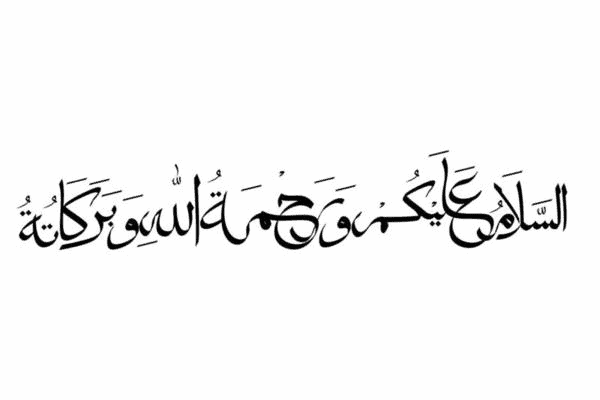 السَّلَامُ عَلَيْكُمْ وَرَحْمَةُ اللّٰهِ وَبَرَكَاتُةُ